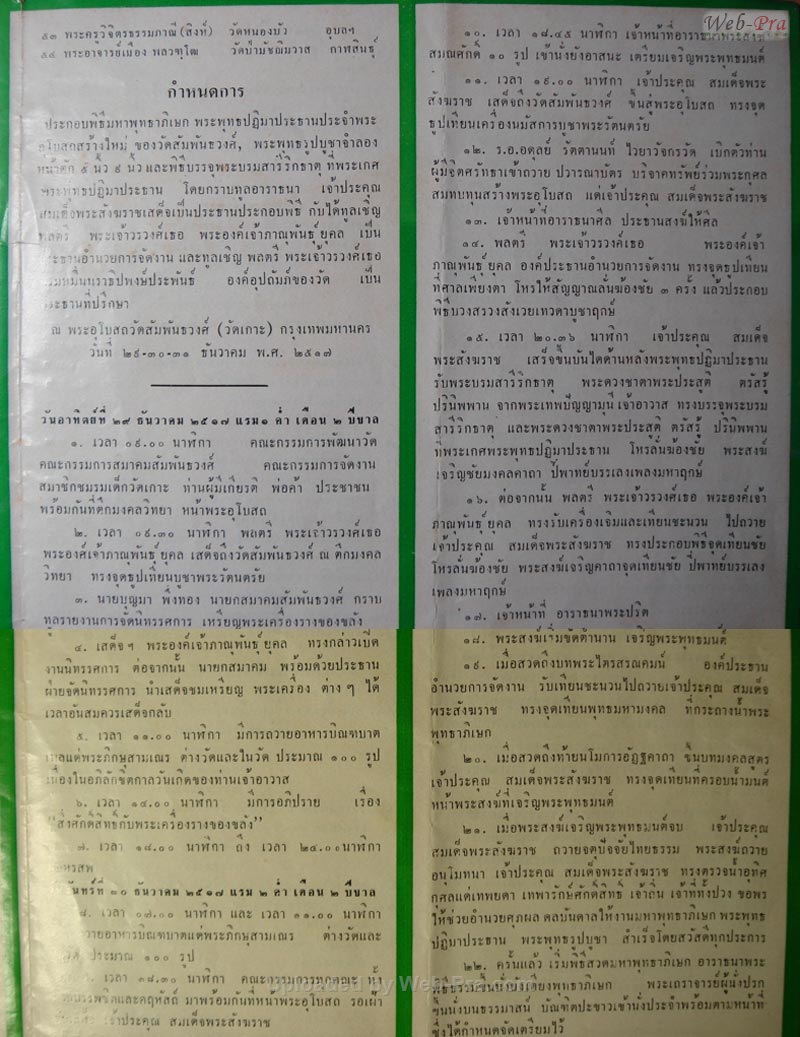 ๕๓ พระครูวิจิตรธรรมภาณี (สิงห์) วัดหนองบัว อุบลฯ
๕๔ พระอาจารย์เมือง พลวฑฺโฒ วัดป่ามัชฌิมวาส กาฬสินธุ์
กำหนดการ
ประกอบพิธีมหาพุทธาภิเษก พระพุทธปฏิมาประธานประจำพระ
อุโบสถสร้างใหม่ ของวัดสัมพันธวงศ์, พระพุทธรูปบูชาจำลอง
หน้าตัก ๕ นิ้ว ๙ นิ้ว และพิธีบรรจุพระบรมสารีริกธาตุ ที่พระเกศ
พระพุทธปฏิมาประธาน โดยกราบทูลอาราธนา เจ้าประคุณ
สมเด็จพระสังฆราชเสด็จเป็นประธานประกอบพิธี กับได้ทูลเชิญ
พลตรี พระเจ้าวรวงศ์เธอ พระองค์เจ้าภาณุพันธุ์ ยุคล เป็น
ประธานอำนวยการจัดงาน และทูลเชิญ พลตรี พระเจ้าวรวงศ์เธอ
กรมหมื่นนราธิปพงษ์ประพันธ์ องค์อุปถัมภ์ของวัด เป็น
ประธานที่ปรึกษา
ณ พระอุโบสถวัดสัมพันธวงศ์ (วัดเกาะ) กรุงเทพมหานคร
วันที่ ๒๙-๓๐-๓๑ ธันวาคม พ.ศ. ๒๕๑๗
วันอาทิตย์ที่ ๒๙ ธันวาคม ๒๕๑๗ แรม ๑ ค่ำ เดือน ๒ ปีขาล
๑. เวลา ๐๙.๐๐ นาฬิกา คณะกรรมการพัฒนาวัด
คณะกรรมการสมาคมสัมพันธวงศ์ คณะกรรมการจัดงาน
สมาชิกชมรมเด็กวัดเกาะ ท่านผู้มีเกียรติ พ่อค้า ประชาชน
พร้อมกันที่ตึกมงคลวิทยา หน้าพระอุโบสถ
๒. เวลา ๐๙.๓๐ นาฬิกา พลตรี พระเจ้าวรวงศ์เธอ
พระองค์เจ้าภาณุพันธุ์ ยุคล เสด็จถึงวัดสัมพันธวงศ์ ณ ตึกมงคล
วิทยา ทรงจุดธูปเทียนบูชาพระรัตนตรัย
๓. นายบุญมา พึ่งทอง นายกสมาคมสัมพันธวงศ์ กราบ
ทูลรายงานการจัดนิทรรศการ เหรียญพระเครื่องรางของขลัง
๔. เสด็จฯ พระองค์เจ้าภาณุพันธุ์ ยุคล ทรงกล่าวเปิด
งานนิทรรศการ ต่อจากนั้น นายกสมาคม พร้อมด้วยประธาน
ฝ่ายจัดนิทรรศการ นำเสด็จชมเหรียญ พระเครื่อง ต่าง ๆ ได้
เวลาอันสมควรเสด็จกลับ
๕. เวลา ๑๑.๐๐ นาฬิกา มีการถวายอาหารบิณฑบาต
เพลแด่พระภิกษุสามเณร ต่างวัดและในวัด ประมาณ ๑๐๐ รูป
เนื่องในอภิลักขิตกาลวันเกิดของท่านเจ้าอาวาส
๖. เวลา ๑๔.๐๐ นาฬิกา มีการอภิปราย เรื่อง
"สิ่งศักดิ์สิทธิ์กับพระเครื่องรางของขลัง"
๗. เวลา ๑๘.๐๐ นาฬิกา ถึง เวลา ๒๔.๐๐ นาฬิกา
มหรสพ
วันจันทร์ที่ ๓๐ ธันวาคม ๒๕๑๗ แรม ๒ ค่ำ เดือน ๒ ปีขาล
๘. เวลา ๐๗.๐๐ นาฬิกา และ เวลา ๑๑.๐๐ นาฬิกา
ถวายอาหารบิณฑบาตแด่พระภิกษุสามเณร ต่างวัดและ
ประมาณ ๑๐๐ รูป
เวลา ๑๘.๓๐ นาฬิกา คณะกรรมการทุกคณะ ทั้ง
และคฤหัสถ์ มาพร้อมกันที่หน้าพระอุโบสถ รอเฝ้า
เจ้าประคุณ สมเด็จพระสังฆราช
๑๐. เวลา ๑๘.๔๕ นาฬิกา เจ้าหน้าที่อาราธนาพระสงฆ์
สมณศักดิ์ ๑๐ รูป เข้านั่งยังอาสนะ เตรียมเจริญพระพุทธมนต์
๑๑. เวลา ๑๙.๐๐ นาฬิกา เจ้าประคุณ สมเด็จพระ
สังฆราช เสด็จถึงวัดสัมพันธวงศ์ ขึ้นสู่พระอุโบสถ ทรงจุด
ธูปเทียนเครื่องนมัสการบูชาพระรัตนตรัย
๑๒. ร.อ.อดุลย์ รัตตานนท์ ไวยาวัจกรวัด เบิกตัวท่าน
ผู้มีจิตศรัทธาเข้าถวาย ปวารณาบัตร บริจาคทรัพย์ร่วมพระกุศล
สมทบทุนสร้างพระอุโบสถ แด่เจ้าประคุณ สมเด็จพระสังฆราช
๑๓. เจ้าหน้าที่อาราธนาศีล ประธานสงฆ์ให้ศีล
๑๔. พลตรี พระเจ้าวรวงศ์เธอ พระองค์เจ้า
ภาณุพันธุ์ ยุคล องค์ประธานอำนวยการจัดงาน ทรงจุดธูปเทียน
ที่ศาลเพียงตา โหรให้สัญญาณลั่นฆ้องชัย ๓ ครั้ง แล้วประกอบ
พิธีบวงสรวงสังเวยเทวดาบูชาฤกษ์
๑๕. เวลา ๒๐.๓๖ นาฬิกา เจ้าประคุณ สมเด็จ
พระสังฆราช เสร็จขึ้นบันไดด้านหลังพระพุทธปฏิมาประธาน
รับพระบรมสารีริกธาตุ พระดวงชาตาพระประสูติ ตรัสรู้
ปรินิพพาน จากพระเทพปัญญามุนี เจ้าอาวาส ทรงบรรจุพระบรม
สารีริกธาตุ และพระดวงชาตาพระประสูติ ตรัสรู้ ปรินิพพาน
ที่พระเกศพระพุทธปฏิมาประธาน โหรลั่นฆ้องชัย พระสงฆ์
เจริญชัยมงคลคาถา ปี่พาทย์บรรเลงเพลงมหาฤกษ์
๑๖. ต่อจากนั้น พลตรี พระเจ้าวรวงศ์เธอ พระองค์เจ้า
ภาณุพันธุ์ ยุคล ทรงรับเครื่องเจิมและเทียนชะนวน ไปถวาย
เจ้าประคุณ สมเด็จพระสังฆราช ทรงประกอบพิธีจุดเทียนชัย
โหรลั่นฆ้องชัย พระสงฆ์เจริญคาถาจุดเทียนชัย ปี่พาทย์บรรเลง
เพลงมหาฤกษ์
๑๗. เจ้าหน้าที่ อาราธนาพระปริต
๑๘. พระสงฆ์เริ่มขัดตำนาน เจริญพระพุทธมนต์
๑๙. เมื่อสวดถึงบทพระไตรสรณคมน์ องค์ประธาน
อำนวยการจัดงาน รับเทียนชะนวนไปถวายเจ้าประคุณ สมเด็จ
พระสังฆราช ทรงจุดเทียนพุทธมหามงคล ที่กระถางน้ำพระ
พุทธาภิเษก
๒๐. เมื่อสวดถึงท้ายนโมการอัฏฐคาถา ขึ้นบทมงคลสูตร
เจ้าประคุณ สมเด็จพระสังฆราช ทรงจุดเทียนที่ครอบน้ำมนต์
หน้าพระสงฆ์ที่เจริญพระพุทธมนต์
๒๑. เมื่อพระสงฆ์เจริญพระพุทธมนต์จบ เจ้าประคุณ
สมเด็จพระสังฆราช ถวายจตุปัจจัยไทยธรรม พระสงฆ์ถวาย
อนุโมทนา เจ้าประคุณ สมเด็จพระสังฆราช ทรงตรวจน้ำอุทิศ
กุศลแด่เทพยดา เทพารักษ์ศักดิ์สิทธิ์ เจ้าถิ่น เจ้าที่ทั้งปวง ขอพร
ให้ช่วยอำนวยศุภผล ดลบันดาลให้งานมหาพุทธาภิเษก พระพุทธ
ปฏิมาประธาน พระพุทธรูปบูชา สำเร็จโดยสวัสดีทุกประการ
๒๒. ครั้นแล้ว เริ่มพิธีสวดมหาพุทธาภิเษก อาราธนาพระ
พิธีธรรมขึ้นนั่งยังเตียงพุทธาภิเษก พระเถราจารย์ผู้นั่งปรก
ขึ้นนั่งบนธรรมาสน์ บัณฑิตปะขาวเข้านั่งประจำพร้อมตามหน้าที่
ซึ่งได้กำหนดจัดเตรียมไว้
Web-Pra